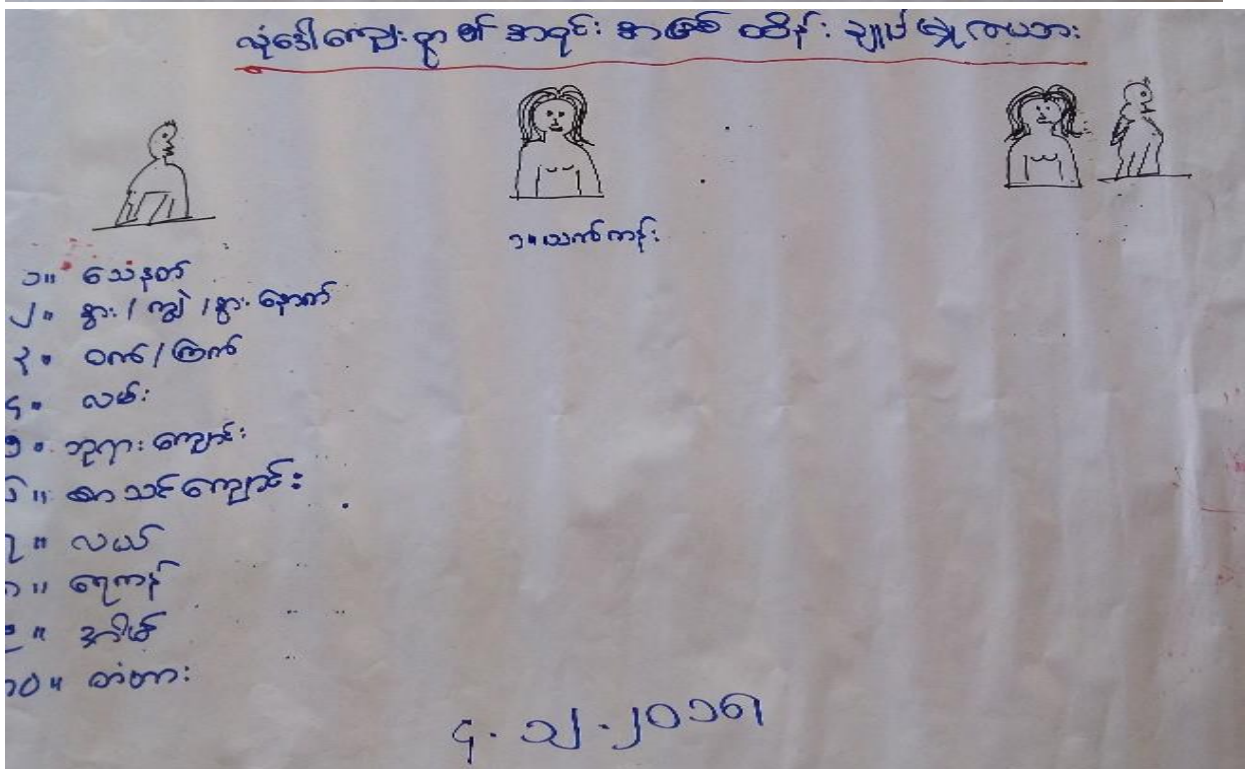 လုံဒေါ်ကျေးရွာ၏ အရင်း အမြစ် ထိန်း ချုပ်မှု ဇယား
၁။ သေနတ်
၂။ နွား / ကျွဲ / နွား နောက်
၃။ ဝက် / ကြက်
၄။ လမ်း
၅။ ဘုရား ကျောင်း
၆။ စာသင်ကျောင်း
၇။ လယ်
၈။ ရေကန်
၉။ အိမ်
၁၀။ တံတား
၁။ ယက်ကန်း
၄.၁၂.၂၀၁၆